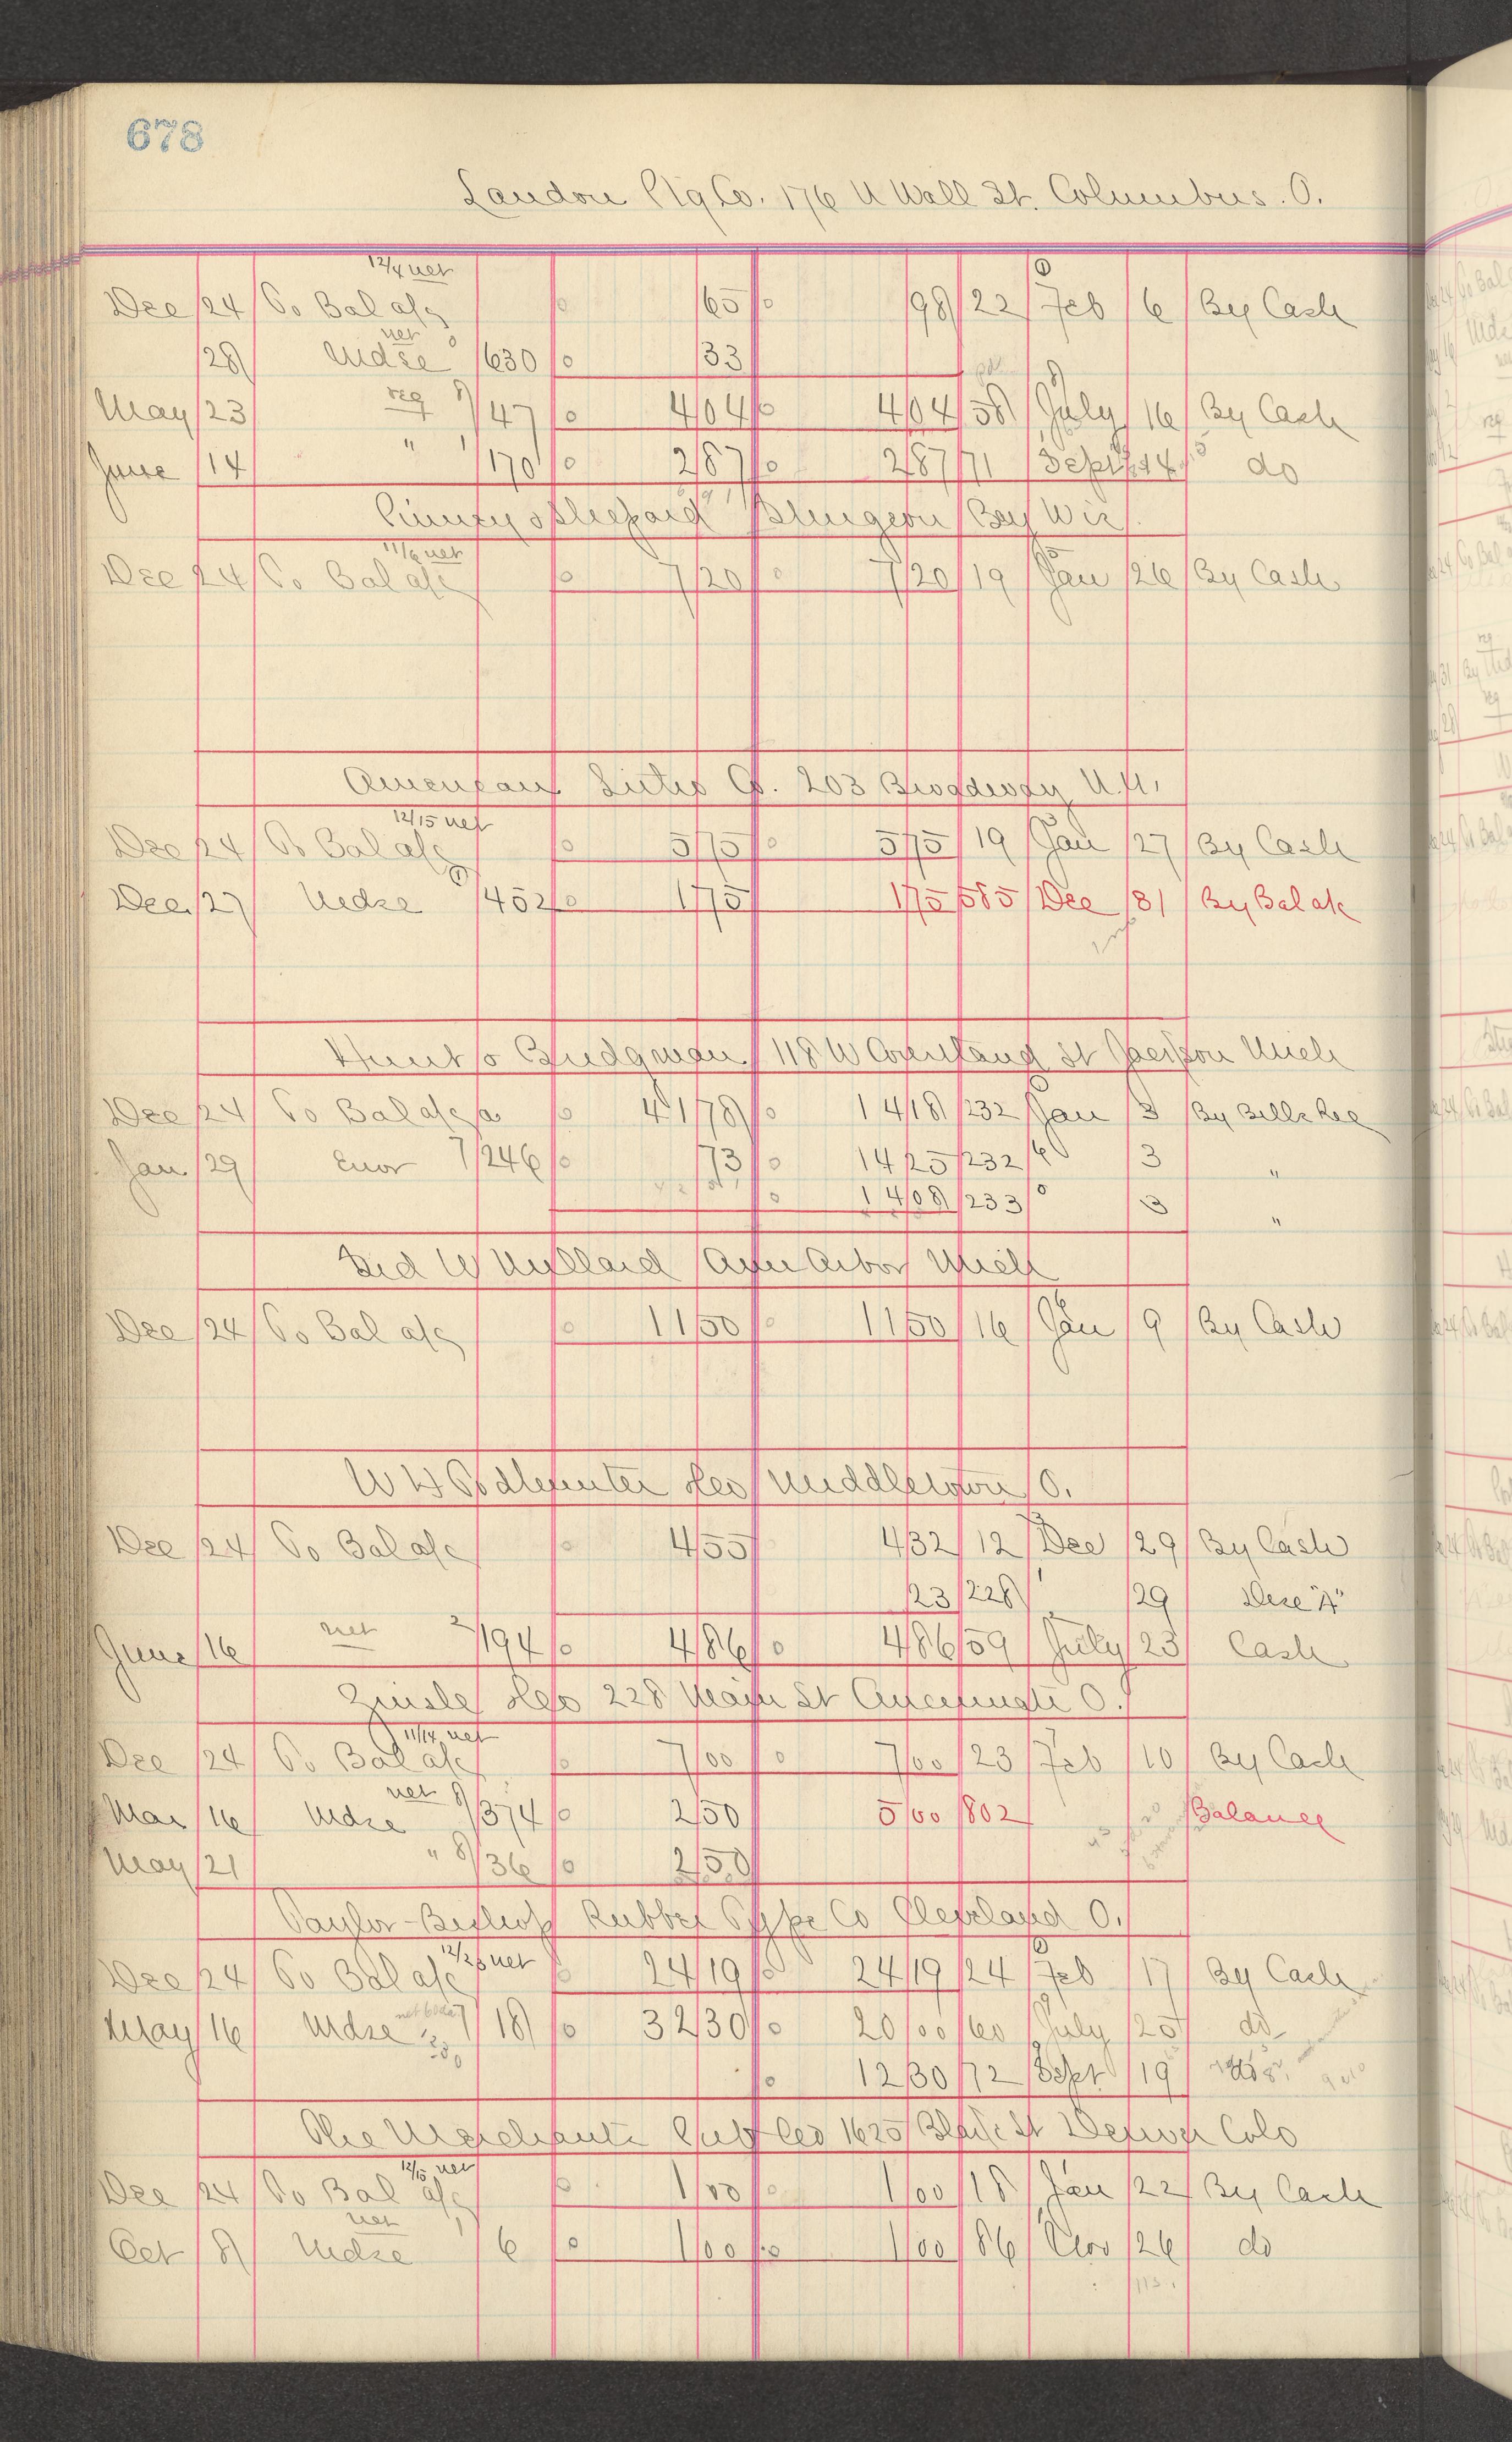 678
Landon Ptg Co. 176 N Wall St. Columbus. O.
12/4 net
Dec 24 To Bal a/c 65 98 22 Feb 6 By Cash
net
28 Mdse 630 33
May 23 reg 8 47 404 404 58 July 16 By Cash
June 14 " 1 170 287 287 71 Sept 14 do
Bay Wis
11/6 net
Dec 24 To Bal a/c 7 20 7 20 19 Jan 26 By Cash
American Co. 203 Broadway N.Y.
12/15 net
Dec 24 To Bal a/c 5 75 5 75 19 Jan 27 By Cash
Dec. 27 Mdse 452 1 75 1 75 585 Dec 31 By Bal a/c
Hunt & Bridgman 118 W Cortland St Jackson Mich
Dec 24 To Bal a/c 41 78 14 18 232 Jan 3 By Bills Rec
Jan 29 Error 7 246 73 14 25 232 3 "
14 08 233 3 "
W Millard Ann Arbor Mich
Dec 24 To Bal a/c 11 50 11 50 16 Jan 9 By Cash
W H Middletown O.
Dec 24 To Bal a/c 4 55 4 32 12 Dec 29 By Cash
23 228 29 Disc "A"
June 16 net 2 194 4 86 4 86 59 July 23 Cash
228 Main St Cincinnati O.
11/14 net
Dec 24 To Bal a/c 7 00 7 00 23 Feb 10 By Cash
net
Mar 16 Mdse 8 374 2 50 5 00 802 Balance
May 21 " 8 36 2 50
Taylor-Bishop Rubber Type Co Cleveland O.
12/26 net
Dec 24 To Bal a/c 24 19 24 19 24 Feb 17 By Cash
May 16 Mdse 7 18 32 30 20 00 60 July 25 do
12 30 72 Sept 19 do
The Merchants Pub Co 1625 Blake St Denver Colo
12/15 net
Dec 24 To Bal a/c 1 00 1 00 18 Jan 22 By Cash
net
Oct 8 Mdse 1 6 1 00 1 00 86 Nov 26 do